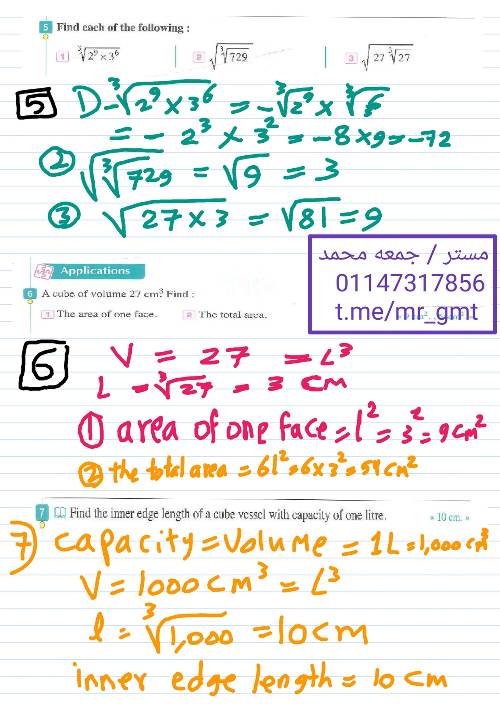 5 Find each of the following :
1 ∛(2⁹ × 3⁶) 2 √(∛729) 3 √(27 ∛27)
5 1) -∛(2⁹ × 3⁶) = -∛2⁹ × ∛3⁶
= - 2³ × 3² = -8 × 9 = -72
2 √(∛729) = √9 = 3
3 √(27 × 3) = √81 = 9
مستر / جمعه محمد
01147317856
t.me/mr_gmt
Applications
6 A cube of volume 27 cm³. Find :
1 The area of one face. 2 The total area.
6 V = 27 = L³
L = ∛27 = 3 cm
1 area of one face = l² = 3² = 9 cm²
2 the total area = 6l² = 6 × 3² = 54 cm²
7 Find the inner edge length of a cube vessel with capacity of one litre. « 10 cm. »
7) capacity = volume = 1L = 1,000 cm³
V = 1000 cm³ = L³
l = ∛1,000 = 10 cm
inner edge length = 10 cm